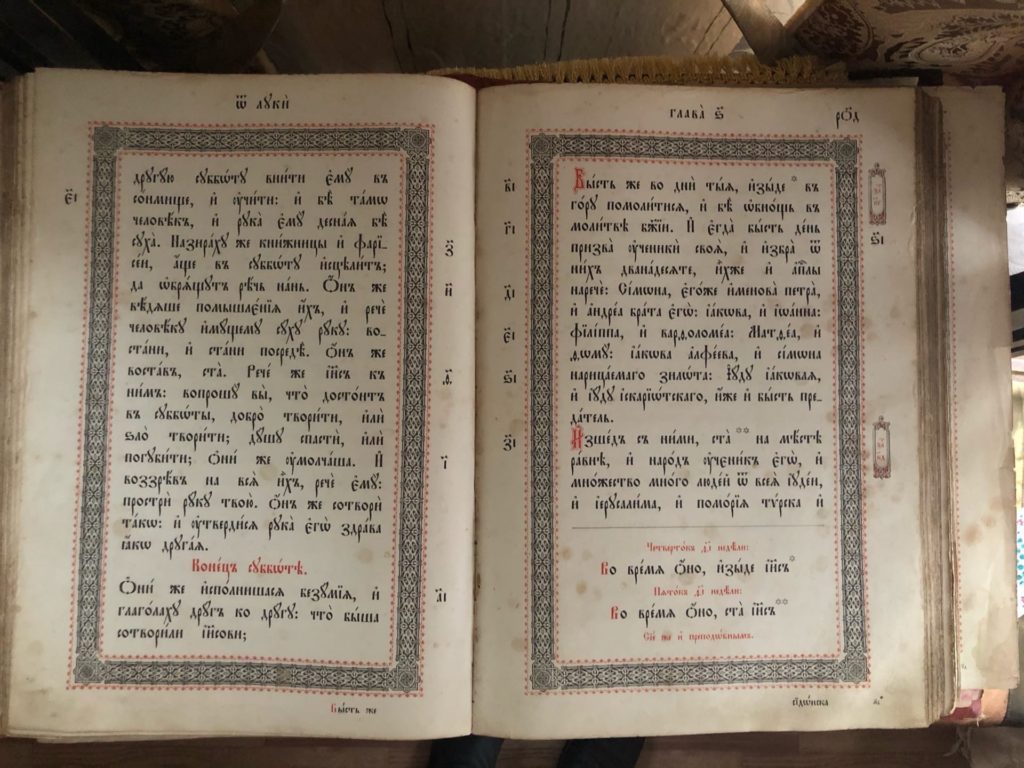 Ѿ лꙋкѝ
є҃і
дрꙋгꙋ́ю сꙋббѡ́тꙋ вни́ти є҆мꙋ̀ въ
со́нмище, и҆ ᲂу҆чи́ти: и҆ бѣ̀ та́мѡ
человѣ́къ, и҆ рꙋка̀ є҆мꙋ̀ десна́ѧ бѣ̀
сꙋха̀. Назира́хꙋ же кни́жницы и҆ фарї-
се́и, а҆́ще въ сꙋббѡ́тꙋ и҆сцѣли́тъ;
да ѡ҆брѧ́щꙋтъ рѣ́чь на́нь. Ѻ҆́нъ же
вѣ́дѧше помышлє́нїѧ и҆́хъ, и҆ речѐ
человѣ́кꙋ и҆мꙋ́щемꙋ сꙋ́хꙋ рꙋ́кꙋ: во-
ста́ни, и҆ ста́ни посредѣ̀. Ѻ҆́нъ же
воста́въ, ста̀. Рече́ же і҆и҃съ къ
ни̑мъ: вопрошꙋ́ вы, что̀ досто́итъ
въ сꙋббѡ́ты, добро̀ твори́ти, и҆лѝ
ѕло̀ твори́ти; дꙋ́шꙋ спастѝ, и҆лѝ
погꙋби́ти; Ѻ҆ни́ же ᲂу҆молча́ша. И҆
воззрѣ́въ на всѧ̑ и҆̀хъ, речѐ є҆мꙋ̀:
прострѝ рꙋ́кꙋ твою̀. Ѻ҆́нъ же сотворѝ
та́кѡ: и҆ ᲂу҆тверди́сѧ рꙋка̀ є҆гѡ̀ здра́ва
ꙗ҆́кѡ дрꙋга́ѧ.
Коне́цъ сꙋббѡ́тѣ.
Ѻ҆ни́ же и҆спо́лнишасѧ безꙋ́мїѧ, и҆
глаго́лахꙋ дрꙋ́гъ ко дрꙋ́гꙋ: что̀ бы́ша
сотвори́ли і҆и҃сови;
з҃
и҃
ѳ҃
і҃
а҃і
Бы́сть же
глава̀ ѕ҃
рѻ҃д
в҃і
г҃і
д҃і
є҃і
ѕ҃і
з҃і
Бы́сть же во дни̑ ты̑ѧ, и҆зы́де * въ
го́рꙋ помоли́тисѧ, и҆ бѣ̀ ѡ҆б̾но́щь въ
моли́твѣ бж҃їи. И҆ є҆гда̀ бы́сть де́нь
призва̀ ᲂу҆чн҃икѝ своѧ̑, и҆ и҆збра̀ ѿ
ни́хъ двана́десѧте, и҆̀хже и҆ а҆пⷭ҇лы
наречѐ: Сі́мѡна, є҆го́же и҆менова̀ петра̀,
и҆ а҆ндре́а бра́та є҆гѡ̀: і҆а́кѡва, и҆ і҆ѡа́нна:
фїлі́ппа, и҆ варѳоломе́а: Матѳе́а, и҆
ѳѡмꙋ̀: і҆а́кѡва а҆лфе́ева, и҆ сі́мѡна
нарица́емаго зилѡ́та: І҆ꙋ́дꙋ і҆а́кѡвлѧ,
и҆ і҆ꙋ́дꙋ і҆скарїѡ́тскаго, и҆́же и҆ бы́сть пре-
да́тель.
И҆ зше́дъ съ ни́ми, ста̀ ** на мѣ́стѣ
ра́внѣ, и҆ наро́дъ ᲂу҆чени́къ є҆гѡ̀, и҆
мно́жество мно́го люді́й ѿ всеѧ̀ і҆ꙋде́и,
и҆ і҆ерⷭ҇сали́ма, и҆ помо́рїѧ тѵ́рска и҆
Четверто́къ д҃ı недѣ́ли:
Во вре́мѧ ѻ҆́но, и҆зы́де і҆и҃съ*
Пѧто́къ д҃ı недѣ́ли:
Во вре́мѧ ѻ҆́но, ста̀ і҆и҃съ**
Сїѐ же и҆ преподѡ́бнымъ.
ѕ҃і
сїдѡ́нска